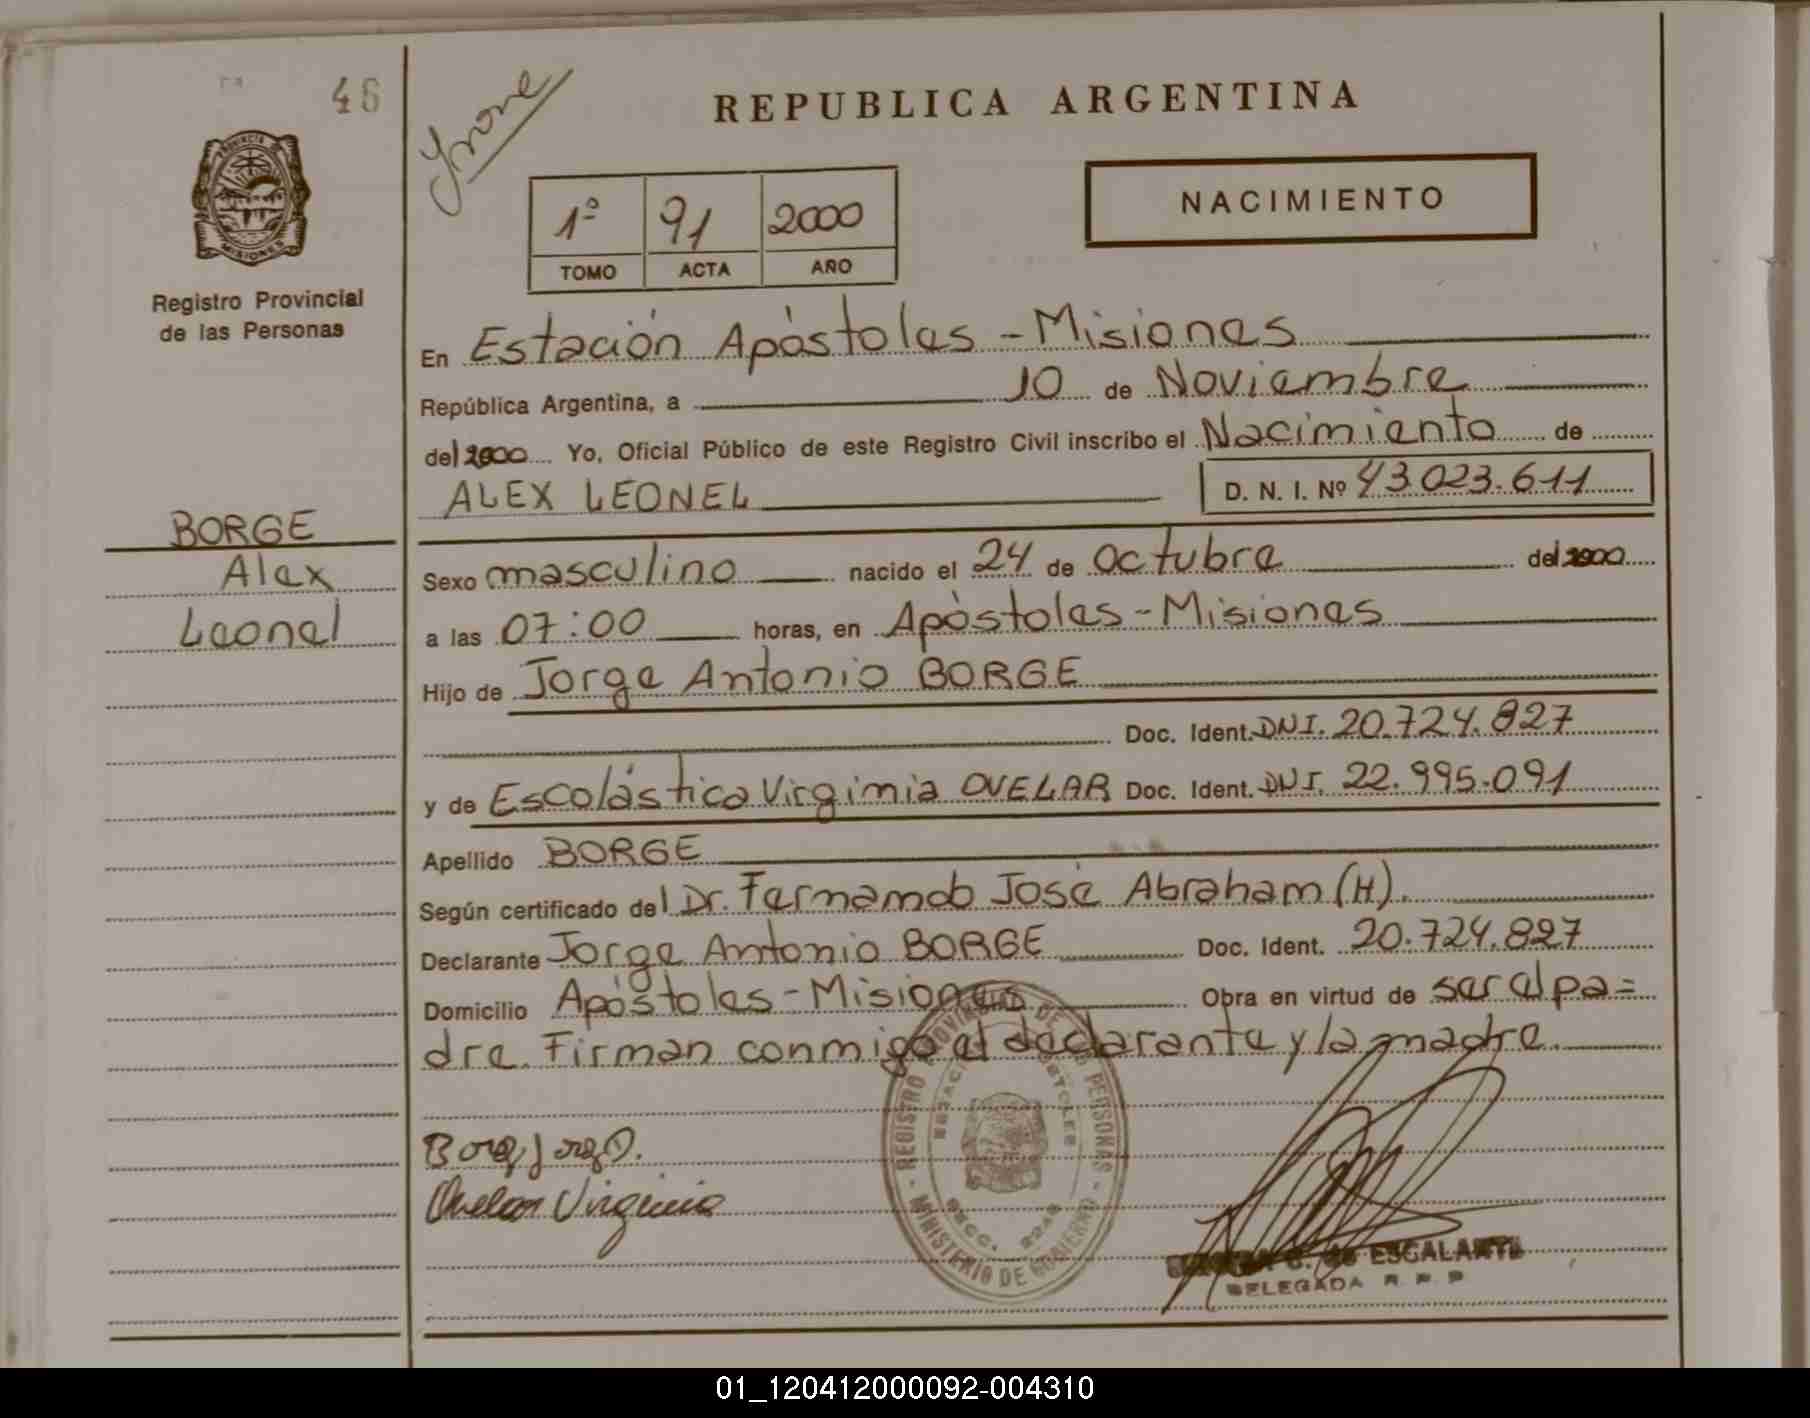 46
PROVINCIA DE
MISIONES
Registro Provincial
de las Personas
BORGE
Alex
Leonel
REPUBLICA ARGENTINA
1º 91 2000
TOMO ACTA AÑO
NACIMIENTO
En Estación Apóstoles - Misiones
República Argentina, a 10 de Noviembre
del 2000 Yo, Oficial Público de este Registro Civil inscribo el Nacimiento de
ALEX LEONEL D. N. I. Nº 43.023.611
Sexo masculino nacido el 24 de octubre del 2000
a las 07:00 horas, en Apóstoles - Misiones
Hijo de Jorge Antonio BORGE
Doc. Ident. DNI. 20.724.827
y de Escolástica Virginia OVELAR Doc. Ident. DNI. 22.995.091
Apellido BORGE
Según certificado del Dr. Fernando José Abraham (H).
Declarante Jorge Antonio BORGE Doc. Ident. 20.724.827
Domicilio Apóstoles - Misiones Obra en virtud de ser el pa=
dre. Firman conmigo el declarante y la madre.
Ovelar Virginia
REGISTRO PROVINCIAL DE LAS PERSONAS - MINISTERIO DE GOBIERNO -
C. de ESCALANTE
DELEGADA R. P. P.
01_120412000092-004310